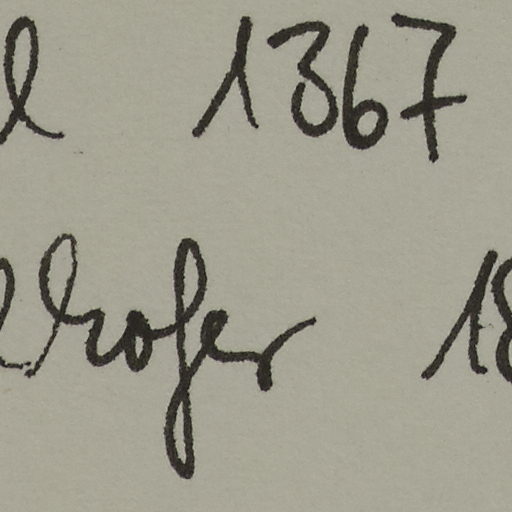 l 1367
lkofer 18